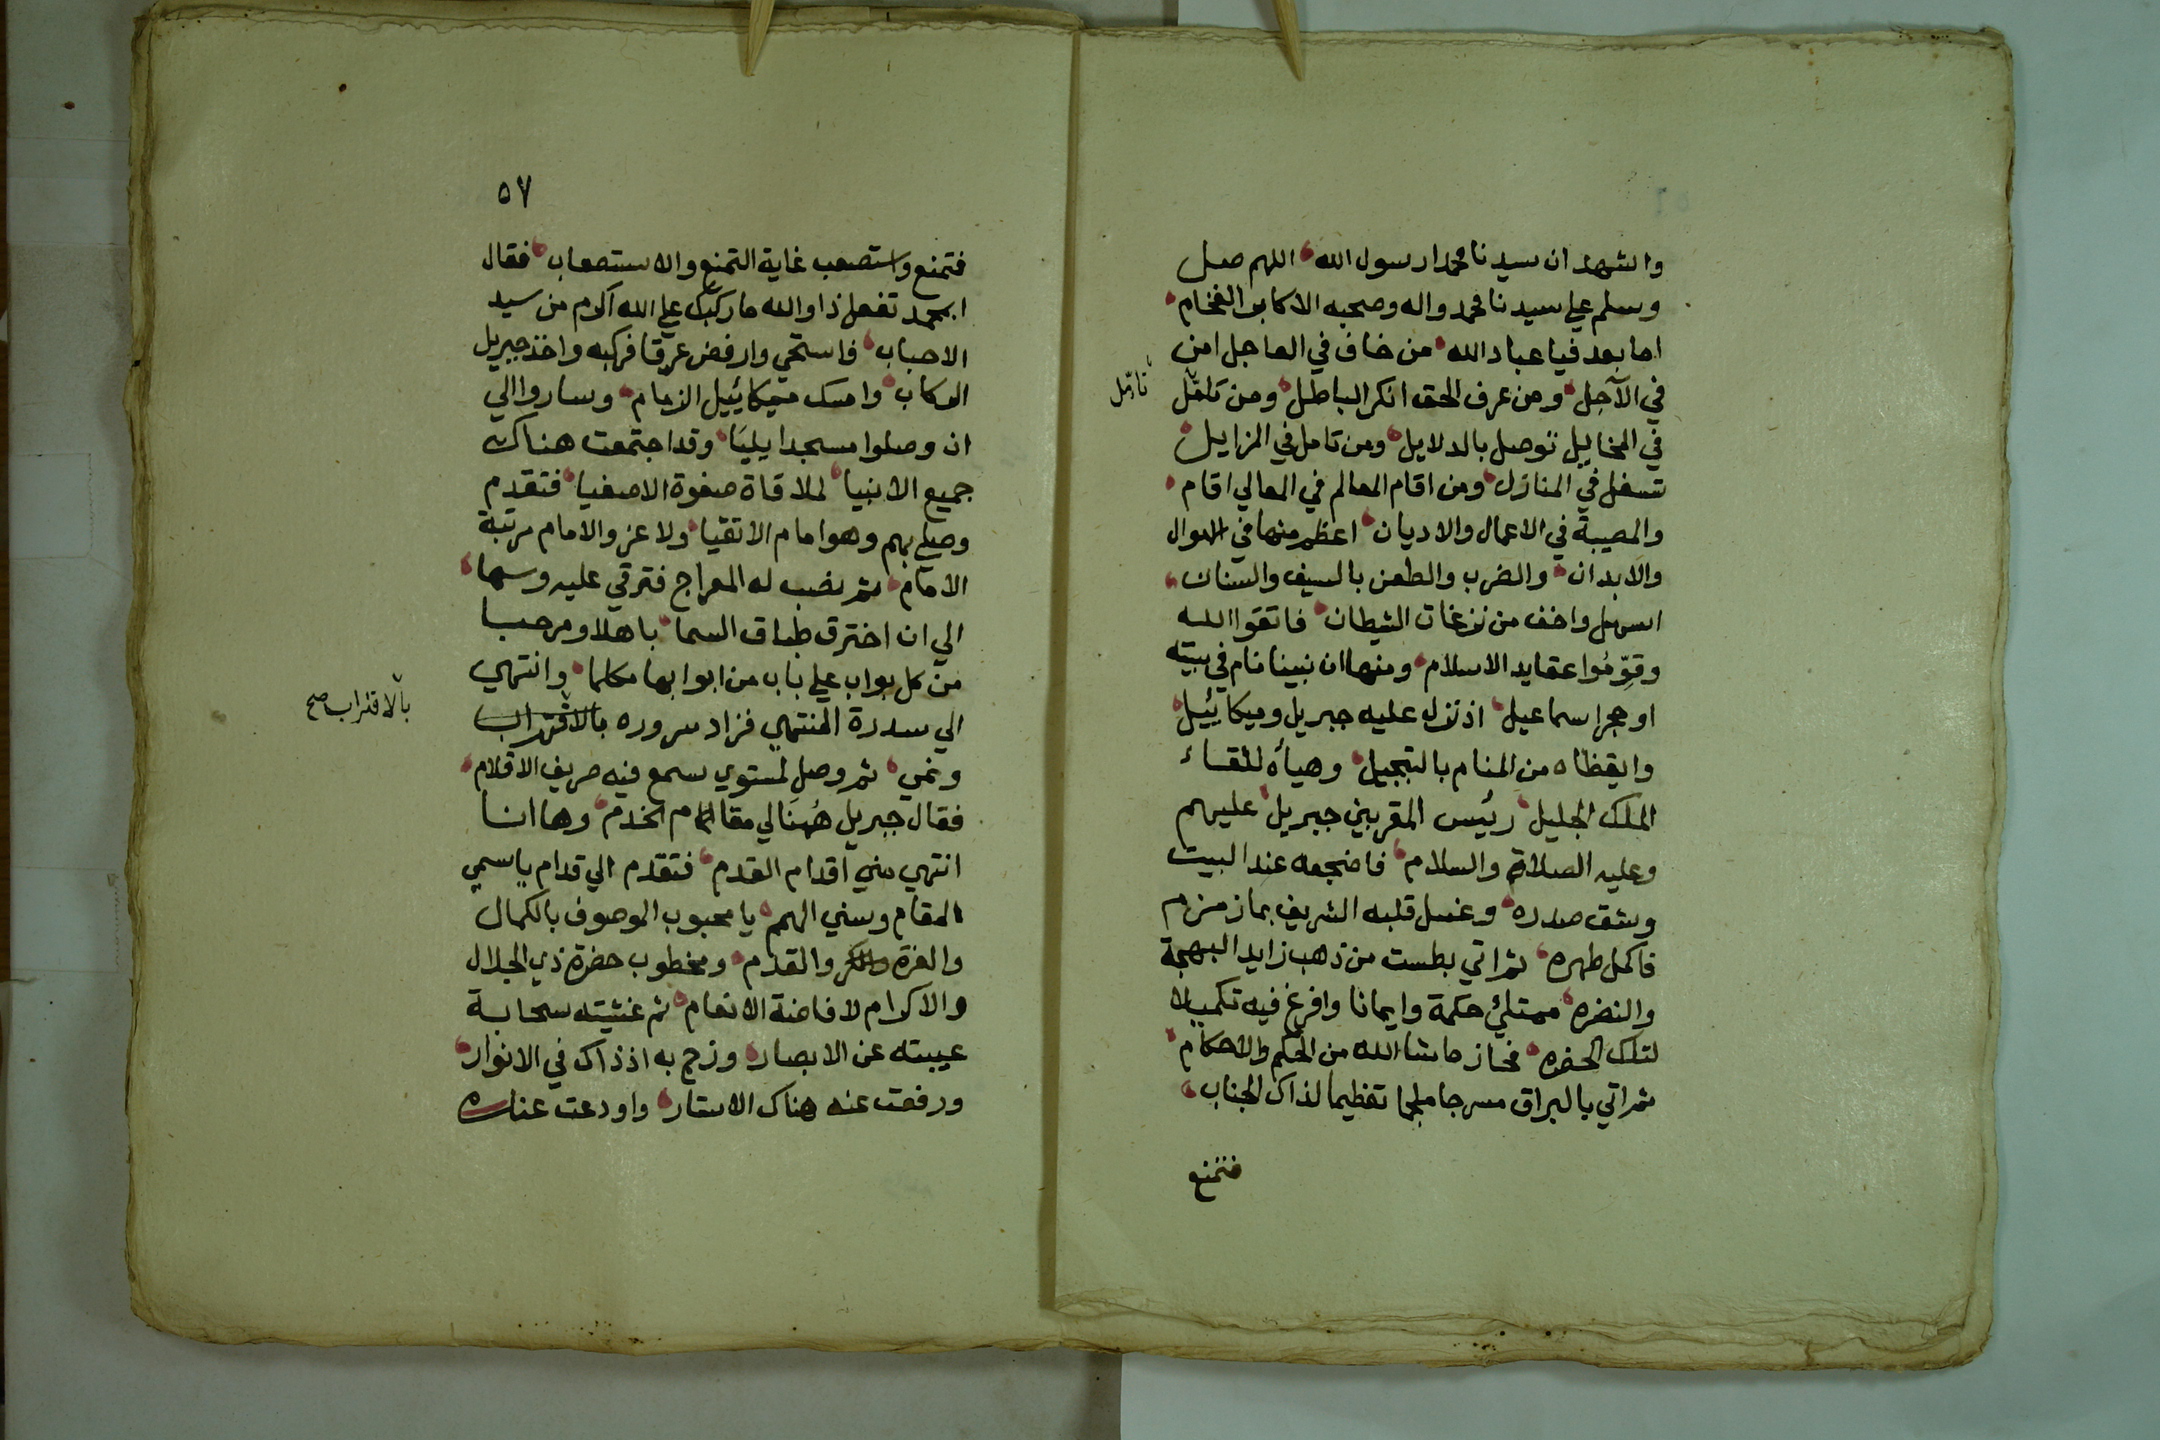 واشهد ان سيدنا محمدا رسول الله اللهم صل
وسلم علي سيدنا محمد واله وصحبه الاكابر الفخام
اما بعد فيا عباد الله من خاف في العاجل امن
في الآجل ومن عرف الحق انكر الباطل ومن تأمّل
تأمّل
في المخايل توصل بالدلايل ومن تامل في المزايل
تسفل في المنازل ومن اقام المعالم في المعالي اقام
والمصيبة في الاعمال والاديان اعظم منها في الاموال
والابدان والضرب والطعن بالسيف والسنان
اسهل واخف من نزغات الشيطان فاتقوا الله
وقوّموا عقايد الاسلام ومنها ان نبينا نام في بيته
او حجر اسماعيل اذ نزل عليه جبريل وميكائيل
وايقظاه من المنام بالتبجيل وهيأه للقاء
الملك الجليل رئيس المقربين جبريل عليهم
وعليه الصلاة والسلام فاضجعه عند البيت
وشق صدره وغسل قلبه الشريف بماز مزم
فاكمل طهره ثم اتي بطست من ذهب زايد البهجة
والنضره ممتلئ حكمة وايمانا وافرغ فيه تكميلا
لتلك الحضره فحاز ماشا الله من الحكم والاحكام
ثم اتي بالبراق مسرجا ملجما تعظيما لذاك الجناب
فتمنع
٥٧
فتمنع واستصعب غاية التمنع والاستصعاب فقال
ابمحمد تفعل ذا والله ما ركبك علي الله اكرم من سيد
الاحباب فاستحي وارفض عرقا فركبه واخذ جبريل
الركاب وامسك ميكائيل الزمام وساروا الي
ان وصلوا مسجد ايليَا وقد اجتمعت هناك
جميع الانبيا لملاقاة صفوة الاصفيا فتقدم
وصلي بهم وهو امام الاتقيا ولا عز والامام مرتبة
الامام ثم نصب له المعراج فترقي عليه وسما
الي ان اخترق طباق السما باهلا ومرحبا
من كل بواب علي باب من ابوابها مكلما وانتهي
الي سدرة المنتهي فزاد سروره بالاقتراب
بالاقتراب صح
ونمي ثم وصل لمستوي سمع فيه صريف الاقلام
فقال جبريل هُهنَا لي مقام الخدم وها انا
انتهي مني اقدام القدم فتقدم الي قدام ياسمي
المقام وسني الهمم يا محبوب الموصوف بالكمال
والعزة والقدم ومخطوب حضرة ذي الجلال
والاكرام لافاضة الانعام ثم غشيته سحابة
غيبته عن الابصار وزج به اذ ذاك في الانوار
ورفعت عنه هناك الاستار واودعت عناره